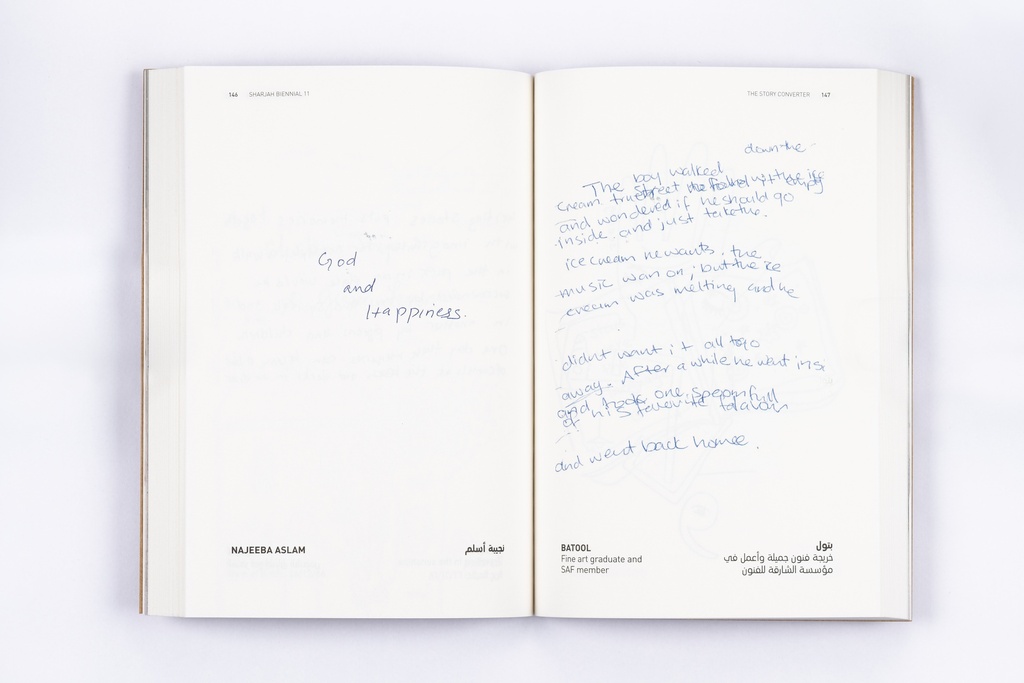 146 SHARJAH BIENNIAL 11
God
and
Happiness.
NAJEEBA ASLAM
نجيبة أسلم
THE STORY CONVERTER 147
down the
The boy walked
cream truck street it empty
and wondered if he should go
inside and just take the.
ice cream he wants. the
music wan on; but the ice
cream was melting and he
didnt want it all to go
away. After a while he want insi
and took one spoonfull
of his favourite flavour
and went back homee.
BATOOL
Fine art graduate and
SAF member
بتول
خريجة فنون جميلة وأعمل في
مؤسسة الشارقة للفنون